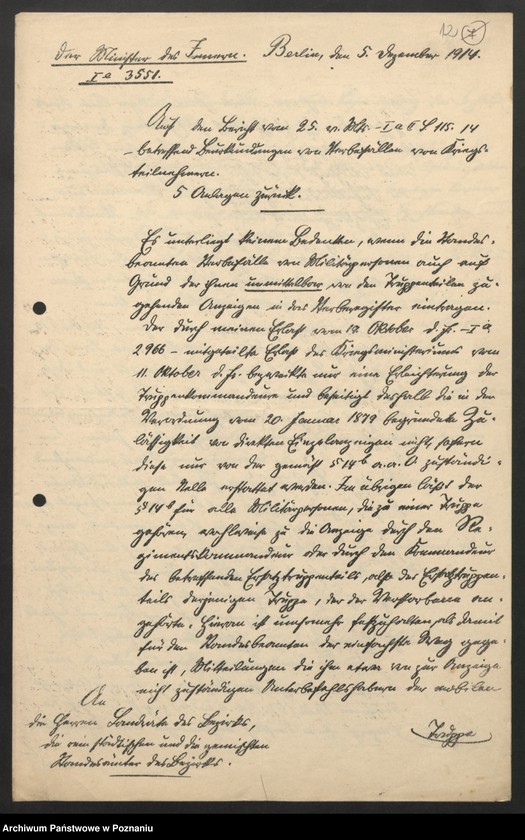 12 7
Der Minister des Innern. Berlin, den 5. Dezember 1914.
Ia 3551.
Auf den Bericht vom 25. v. Mts. – I a
– betreffend Beurkundungen von Sterbefällen von Kriegs-
teilnehmern.
5 Anlagen zurück.
Es unterliegt keinem Bedenken, wenn die Standes-
beamten Sterbefälle von Militärpersonen auch auf
Grund der ihnen unmittelbar von den Truppenteilen zu-
gehenden Anzeigen in das Sterberegister eintragen.
Der durch meinen Erlaß vom Oktober d. Js. – I a
2966 – mitgeteilte Erlaß des Kriegsministeriums vom
11. Oktober d. Js. bezweckte nur eine Erleichterung der
Truppenkommandeure und beseitigt deshalb die in der
Verordnung vom 20. Januar 1879 begründete Zu-
lässigkeit von direkten Einzelanzeigen nicht, sofern
diese nur von der gemäß § 14 b a. a. O. zuständi-
gen Stelle erstattet werden. Im übrigen läßt der
§ 14 b für alle Militärpersonen, die zu einer Truppe
gehören, wahlweise zu die Anzeige durch den Re-
gimentskommandeur oder durch den Kommandeur
des betreffenden Ersatztruppenteils, also des Ersatztruppen-
teils derjenigen Truppe, der der Verstorbene an-
gehörte. Hieran ist umsomehr festzuhalten, als damit
für den Standesbeamten der einfachste Weg gege-
ben ist, Mitteilungen die ihm etwa von zur Anzeige
nicht zuständigen Unterbefehlshabern der mobilen
Truppe
An
die Herren Landräte des Bezirks,
die rein städtischen und die gemischten
Standesämter des Bezirks.
Archiwum Państwowe w Poznaniu